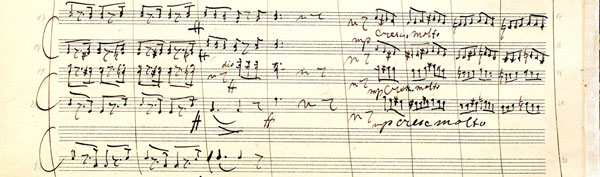 ff
mp cresc molto
div
ff
mp cresc molto
ff
ff
mp cresc molto